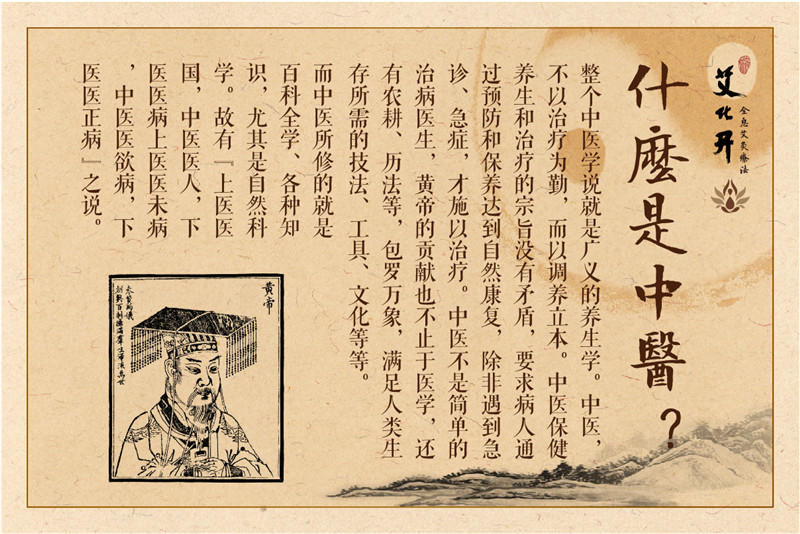 艾化开
全息艾灸療法
什麼是中醫？
整个中医学说就是广义的养生学。中医，
不以治疗为勤，而以调养立本。中医保健
养生和治疗的宗旨没有矛盾，要求病人通
过预防和保养达到自然康复，除非遇到急
诊、急症，才施以治疗。中医不是简单的
治病医生，黄帝的贡献也不止于医学，还
有农耕、历法等，包罗万象，满足人类生
存所需的技法、工具、文化等等。
而中医所修的就是
百科全学、各种知
识，尤其是自然科
学。故有『上医医
国，中医医人，下
医医病上医医未病
，中医医欲病，下
医医正病』之说。
黄帝